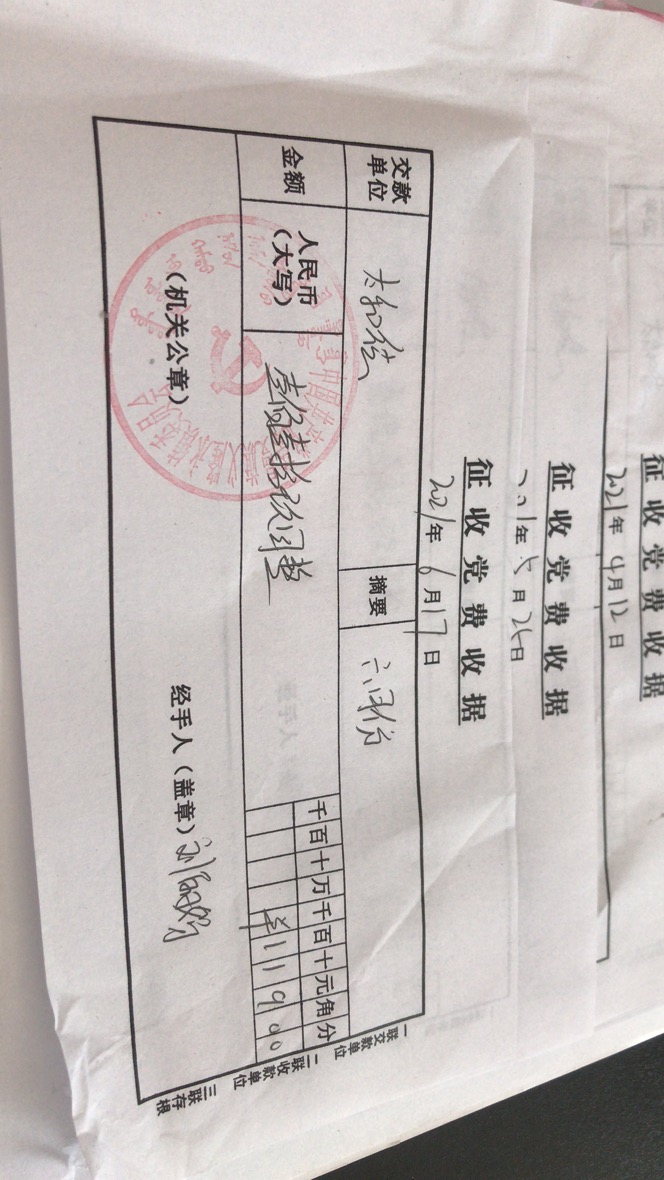 征收党费收据
2021年4月12日
征收党费收据
年5月26日
征收党费收据
2021年6月17日
交款单位 太和 摘要 六月份
金额 人民币（大写） 壹佰壹拾玖圆整 千百十万千百十元角分
¥11900
（机关公章） 经手人（盖章）刘
一联交款单位
二联收款单位
三联存根